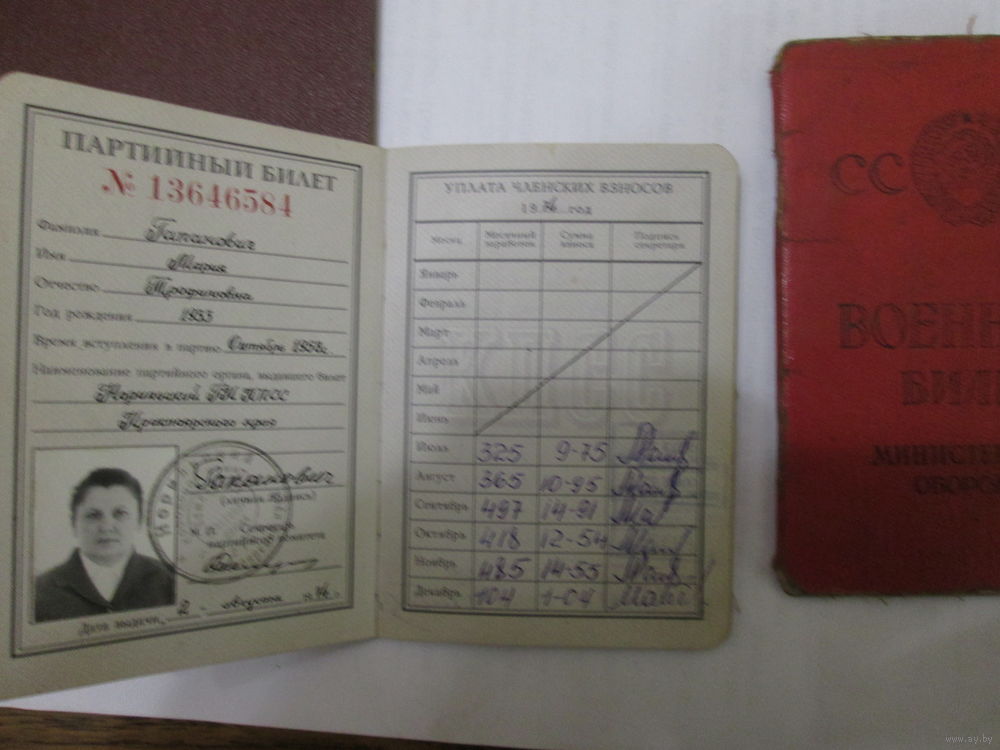 ПАРТИЙНЫЙ БИЛЕТ
№ 13646584
Фамилия Гапанович
Имя Мария
Отчество Трофимовна
Год рождения 1933
Время вступления в партию Октябрь 1958г.
Наименование партийного органа, выдавшего билет
Норильский ГК КПСС
Красноярского края
Гапанович
(личная подпись)
М. П. Секретарь
партийного комитета
Дата выдачи 2 августа 1974 г.
УПЛАТА ЧЛЕНСКИХ ВЗНОСОВ
1974 год
Месяц Месячный заработок Сумма взноса Подпись секретаря
Январь
Февраль
Март
Апрель
Май
Июнь
Июль 325 9-75
Август 365 10-95
Сентябрь 497 14-91
Октябрь 418 12-54
Ноябрь 485 14-55
Декабрь 104 1-04
КПСС
СС
ВОЕН
БИЛ
МИНИСТЕ
ОБОРО
www.ay.by